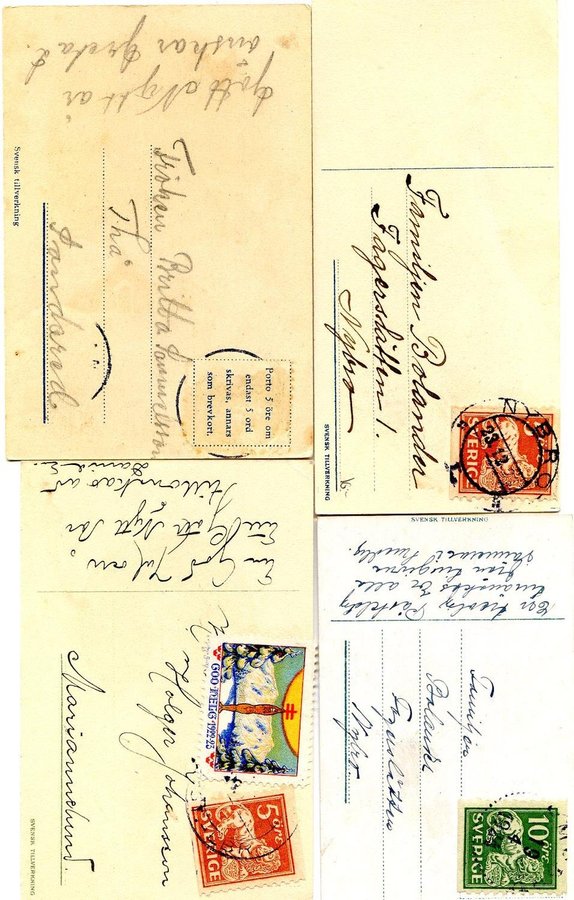 Gott Nytt år
önskar Greta d.
Fröken Britta Samuelsson
Thå
Sandared.
Svensk tillverkning
Porto 5 öre om
endast 5 ord
skrivas, annars
som brevkort.
Familjen Bolander
Fägerslätten 1.
Nybro
SVENSK TILLVERKNING
SVERIGE
NYBRO
En God Jul och
Ett Gott Nytt År
tillönskas av
Holger Johansson
Mariannelund.
SVENSK TILLVERKNING
GOD HELG 1922-23
5 öre
SVERIGE
SVENSK TILLVERKNING
En
tillönskas Er alla
från
Familjen
Bolander
Fägerslätten
Nybro.
10 öre
SVERIGE